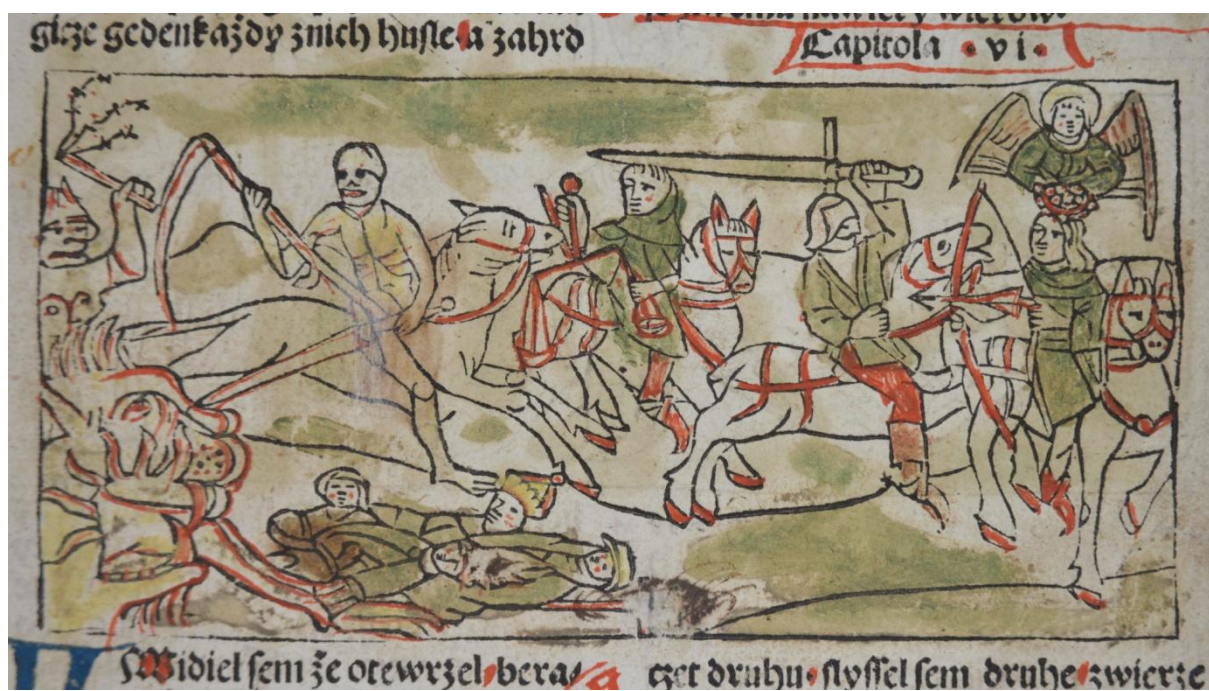 gicze gedenkaždy znich husle a zahrd
Capitola • vi •
Widiel sem že otewrzel bera
czet druhu slyssel sem druhe zwierze